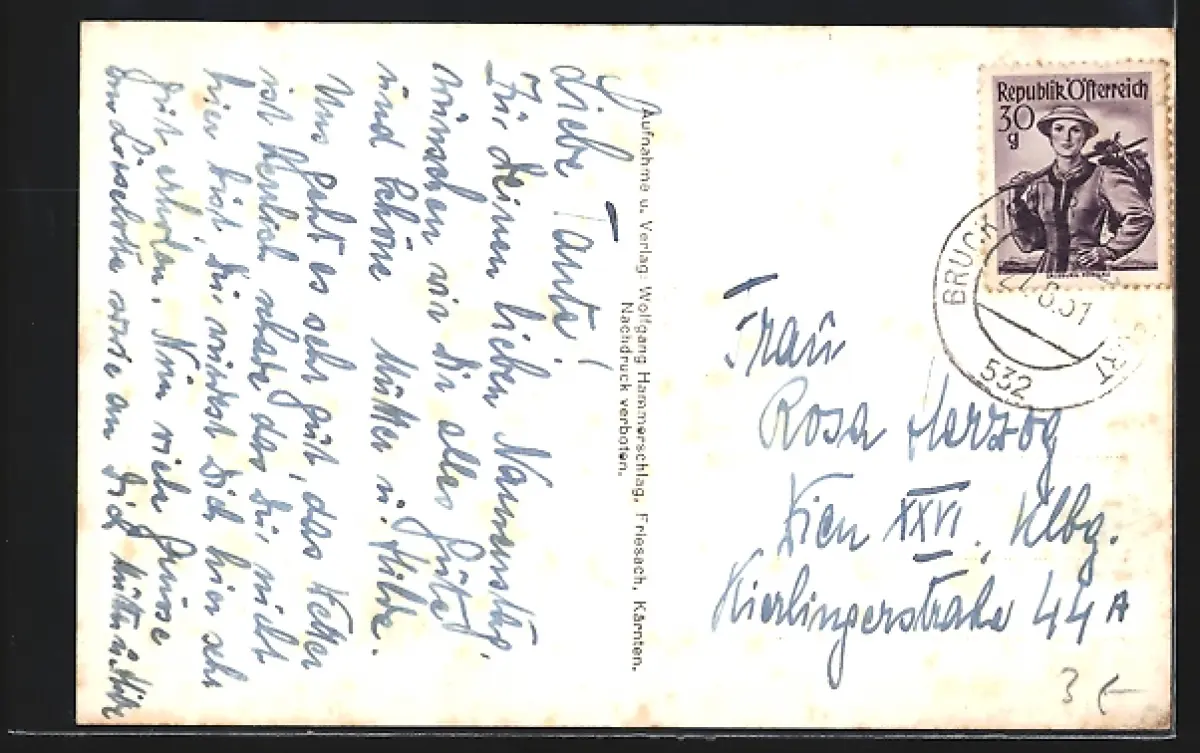 Liebe Tante!
Für deinen lieben Namenstag,
wünschen wir Dir alles Gute
und Schöne Mutter u. Hilde.
Uns geht es sehr gut, das Wetter
ist Herrlich schade das Du nicht
hier bist Du wirst Dich hier sehr
gut erholen. Nun viele Grüsse
an Lieselotte wie an Dich Mutter u. Hilde
Aufnahme u. Verlag: Wolfgang Hammerschlag, Friesach, Kärnten.
Nachdruck verboten.
Republik Österreich
30
g
BRUCK
8.51
532
Frau
Rosa Herzog
Wien XXVI. Klbg.
Kierlingerstraße 44 A
3 €